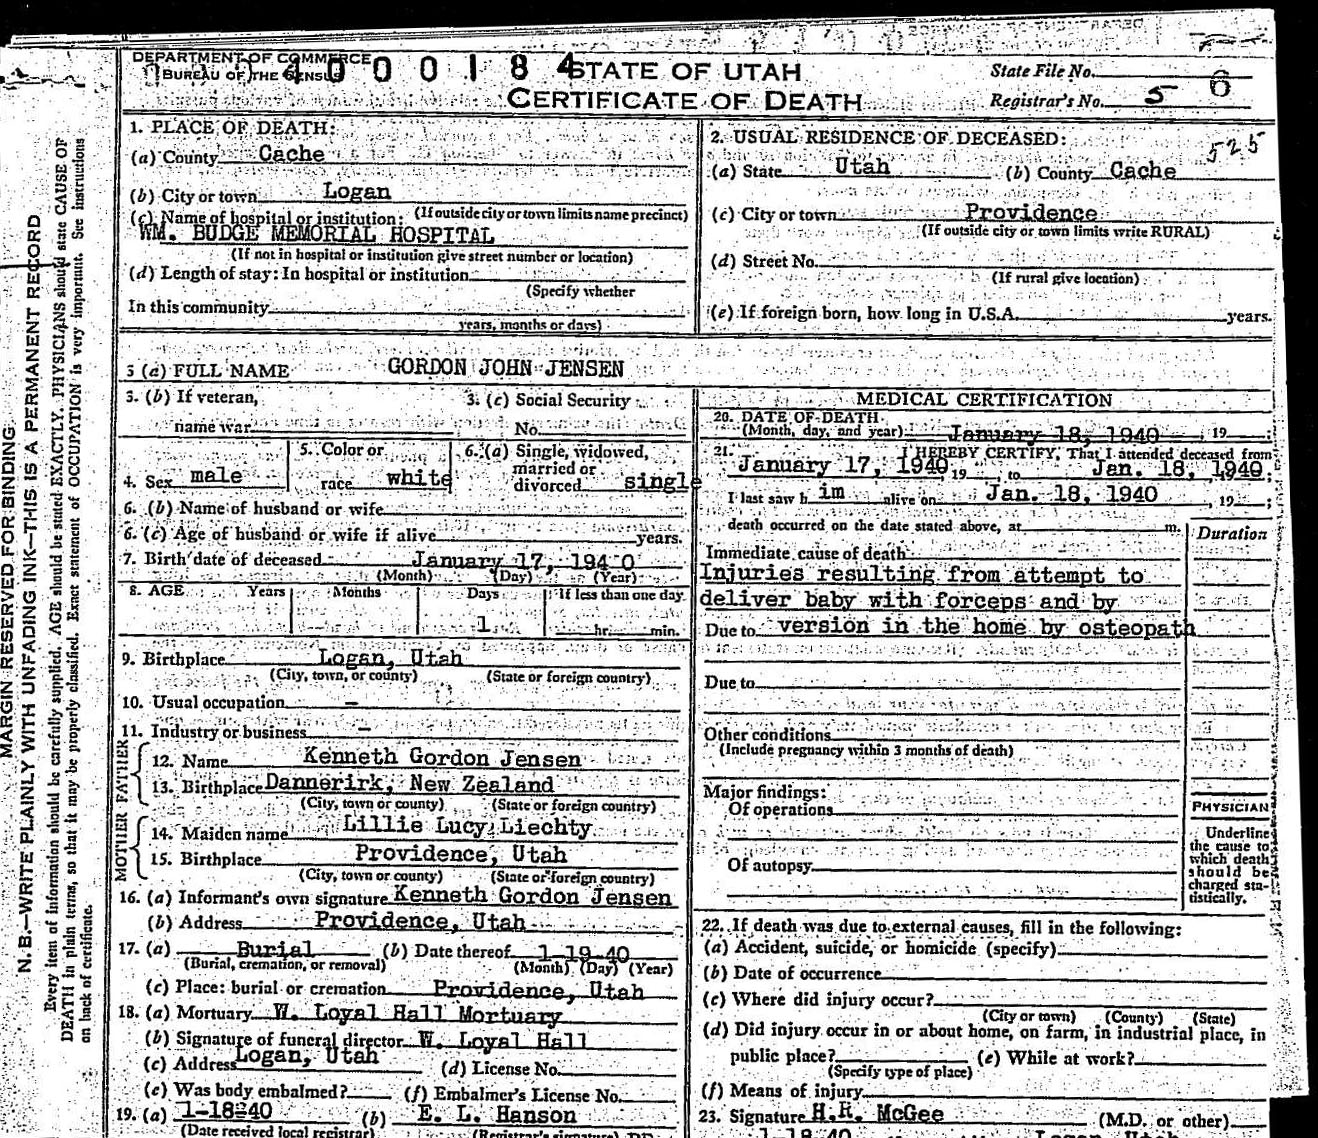 DEPARTMENT OF COMMERCE
BUREAU OF THE CENSUS
4 0 0 0 1 8 4
STATE OF UTAH
CERTIFICATE OF DEATH
State File No. 6
Registrar's No. 5
525
1. PLACE OF DEATH:
(a) County Cache
(b) City or town Logan
(c) Name of hospital or institution: (If outside city or town limits name precinct)
WM. BUDGE MEMORIAL HOSPITAL
(If not in hospital or institution give street number or location)
(d) Length of stay: In hospital or institution
(Specify whether
In this community
years, months or days)
2. USUAL RESIDENCE OF DECEASED:
(a) State Utah (b) County Cache
(c) City or town Providence
(If outside city or town limits write RURAL)
(d) Street No.
(If rural give location)
(e) If foreign born, how long in U.S.A. years.
3 (a) FULL NAME GORDON JOHN JENSEN
3. (b) If veteran, 3. (c) Social Security
name war No.
4. Sex male 5. Color or race white 6. (a) Single, widowed, married or divorced single
6. (b) Name of husband or wife
6. (c) Age of husband or wife if alive years.
7. Birth date of deceased January 17, 194 0
(Month) (Day) (Year)
8. AGE Years Months Days If less than one day
1 hr. min.
9. Birthplace Logan, Utah
(City, town, or county) (State or foreign country)
10. Usual occupation -
11. Industry or business -
FATHER
12. Name Kenneth Gordon Jensen
13. Birthplace Dannerirk, New Zealand
(City, town or county) (State or foreign country)
MOTHER
14. Maiden name Lillie Lucy Liechty
15. Birthplace Providence, Utah
(City, town or county) (State or foreign country)
16. (a) Informant's own signature Kenneth Gordon Jensen
(b) Address Providence, Utah
17. (a) Burial (b) Date thereof 1-19-40
(Burial, cremation, or removal) (Month) (Day) (Year)
(c) Place: burial or cremation Providence, Utah
18. (a) Mortuary W. Loyal Hall Mortuary
(b) Signature of funeral director W. Loyal Hall
(c) Address Logan, Utah (d) License No.
(e) Was body embalmed? (f) Embalmer's License No.
19. (a) 1-18-40 (b) E. L. Hanson
(Date received local registrar) (Registrar's signature)
MEDICAL CERTIFICATION
20. DATE OF DEATH
(Month, day, and year) January 18, 1940, 19 ;
21. I HEREBY CERTIFY, That I attended deceased from
January 17, 1940, 19 to Jan. 18, 1940;
I last saw h im alive on Jan. 18, 1940, 19 ;
death occurred on the date stated above, at m.
Duration
Immediate cause of death
Injuries resulting from attempt to
deliver baby with forceps and by
Due to version in the home by osteopath
Due to
Other conditions
(Include pregnancy within 3 months of death)
Major findings:
Of operations
Of autopsy
PHYSICIAN
Underline
the cause to
which death
should be
charged sta-
tistically.
22. If death was due to external causes, fill in the following:
(a) Accident, suicide, or homicide (specify)
(b) Date of occurrence
(c) Where did injury occur?
(City or town) (County) (State)
(d) Did injury occur in or about home, on farm, in industrial place, in
public place? (e) While at work?
(Specify type of place)
(f) Means of injury
23. Signature H.R. McGee (M.D. or other)
1-18-40 Logan, Utah
MARGIN RESERVED FOR BINDING
N. B.—WRITE PLAINLY WITH UNFADING INK—THIS IS A PERMANENT RECORD
Every item of information should be carefully supplied. AGE should be stated EXACTLY. PHYSICIANS should state CAUSE OF
DEATH in plain terms, so that it may be properly classified. Exact statement of OCCUPATION is very important. See instructions
on back of certificate.